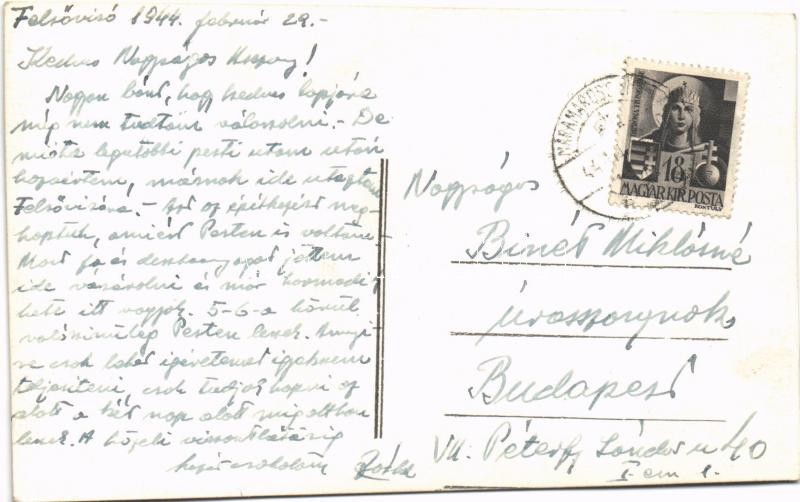 Felsővisó 1944. február 29.-
Kedves Nagyságos Asszony!
Nagyon bánt, hogy kedves lapjára
még nem tudtam válaszolni.- De
mióta legutóbbi pesti utam után
hazaértem, máris ide utaztam
Felsővisóra.- Azt az építkezést meg-
kaptuk, amiért Pesten is voltam.
Most fa és deszkaanyagot jöttem
ide vásárolni és már harmadik
hete itt vagyok. 5-6-a körül
valószínüleg Pesten leszek. Annyi-
ra csak lehet igéretemet igyekszem
teljesíteni, csak tudjak kapni az
alatt a két nap alatt míg ottan
leszek. A közeli viszontlátásig
kezét csókolom
MÁRAMAROS
18
MAGYAR KIR. POSTA
Nagyságos
Binét Miklósné
úrasszonynak
Budapest
VII. Péterfy Sándor u 40
I em 1.